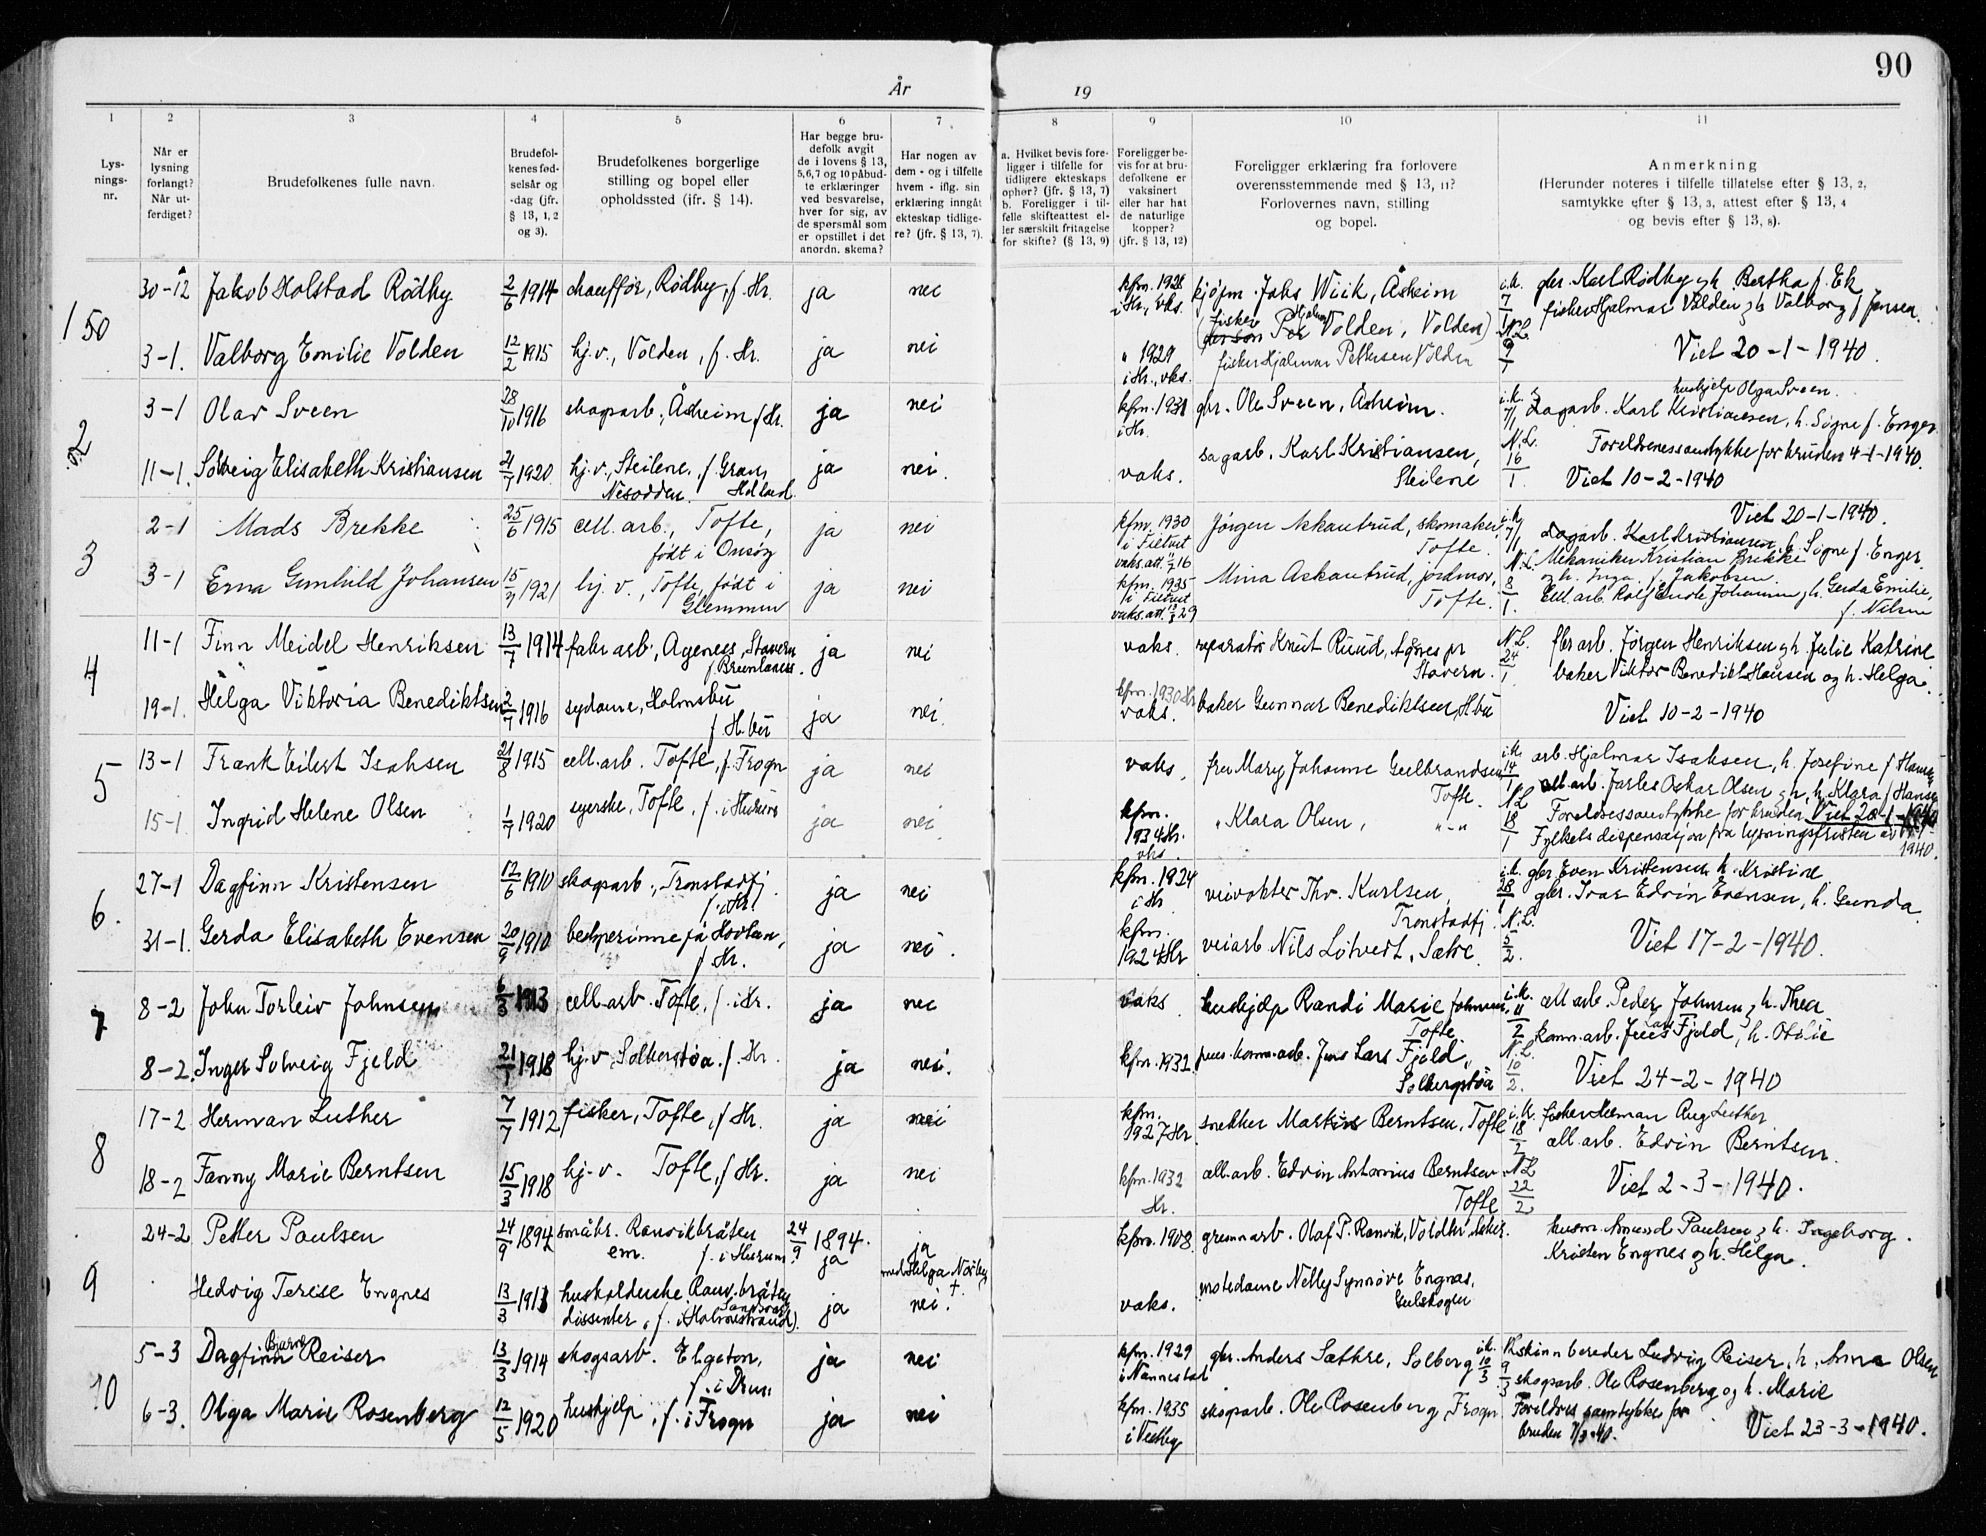 90
År 19
1 2 3 4 5 6 7 8 9 10 11
Lys-
nings-
nr.
Når er
lysning
forlangt?
Når ut-
ferdiget?
Brudefolkenes fulle navn.
Brudefol-
kenes fød-
selsår og
-dag (jfr.
§ 13, 1, 2
og 3).
Brudefolkenes borgerlige
stilling og bopel eller
opholdssted (ifr. § 14).
Har begge bru-
defolk avgit
de i lovens § 13,
5,6,7 og 10 påbud-
te erklæringer
ved besvarelse,
hver for sig, av
de spørsmål som
er opstillet i det
anordn. skema?
Har nogen av
dem - og i tilfelle
hvem - iflg. sin
erklæring inngåt
ekteskap tidlige-
re? (jfr. § 13, 7).
a. Hvilket bevis fore-
ligger i tilfelle for
tidligere ekteskaps
ophør? (jfr. § 13, 7)
b. Foreligger i til-
felle skifteattest el-
ler særskilt fritagelse
for skifte? (§ 13, 9)
Foreligger be-
vis for at bru-
defolkene er
vaksinert
eller har hat
de naturlige
kopper?
(jfr. § 13, 12)
Foreligger erklæring fra forlovere
overensstemmende med § 13, 11?
Forlovernes navn, stilling
og bopel.
Anmerkning
(Herunder noteres i tilfelle tillatelse efter § 13, 2,
samtykke efter § 13, 3, attest efter § 13, 4
og bevis efter § 13, 8).
1 50
30-12 Jakob Holstad Rødby 2/6 1914 chauffør, Rødby, f. Hr. ja nei
kfm. 1928 i Hr., vks. kjøpm. Jahs Wiik, Åsheim
i.k. 7/1 gbr. Karl Rødby og h. Bertha f. Ek
3-1. Valborg Emilie Volden 12/2 1915 hj.v., Volden, f. Hr. ja nei
" 1929 i Hr., vks. (fisker Hjalmar Volden, Volden)
fisker Hjalmar Pettersen Volden
N.L. 9/1 fisker Hjalmar Volden og h. Valborg f. Jensen.
Viet 20-1-1940.
2
3-1 Olav Sveen 28/10 1916 skogsarb., Åsheim, f. Hr. ja nei
kfm. 1931 i Hr. gbr. Ole Sveen, Åsheim.
i.k. 7/1 hushjelp Olga Sveen.
sagarb. Karl Kristiansen, h. Signe f. Enger
11-1. Solveig Elisabeth Kristiansen 21/7 1920 hj.v., Steilene, Nesodden. f. Gran, Hadeland. ja nei.
vaks. sagarb. Karl Kristiansen, Steilene
N.L. 16/1 Foreldrenes samtykke for bruden 4-1-1940.
Viet 10-2-1940
3
2-1 Mads Brekke 25/6 1915 cell. arb., Tofte, født i Onsøy ja nei
kfm. 1930 i Filtvet vaks. att. 16 Jørgen Askautrud, skomaker, Tofte.
Viet 20-1-1940.
i.k. 7/1 sagarb. Karl Kristiansen, h. Signe f. Enger.
Mekaniker Kristian Brekke og h. Inga, f. Jakobsen.
3-1 Erna Gunhild Johansen 15/7 1921 hj. v., Tofte, født i Glemmen ja nei
kfm. 1935 i Filtvet vaks. att. 29 Mina Askautrud, jordmor, Tofte.
N.L. 8/1. Cell. arb. Rolf Johansen og h. Gerda Emilie, f. Nilsen
4
11-1 Finn Meidel Henriksen 13/7 1914 fabr. arb., Agenes, Stavern f. Brunlanes. ja nei
vaks. reparatør Knut Ruud, Agnes pr Stavern.
N.L. 24/1. fbr arb. Jørgen Henriksen og h. Julie Katrine
19-1. Helga Viktoria Benediktsen 2/7 1916 sydame, Holmsbu f. H.bu ja nei.
kfm. 1930 Hr vaks. baker Gunnar Benediktsen, H.bu
baker Viktor Benedikt Hansen og h. Helga.
Viet 10-2-1940
5
13-1 Frank Eilert Isaksen 21/8 1915 cell. arb. Tofte, f. Frogn ja nei
vaks. fru Mary Johanne Gulbrandsen, Tofte.
i.k. 14/1 arb. Hjalmar Isaksen, h. Josefine f. Hansen
15-1. Ingrid Helene Olsen 1/7 1920 syerske, Tofte, f. i Hurum ja nei.
kfm. 1934 Hr. vks. " Klara Olsen, "-"
cell. arb. Jarles Oskar Olsen og h. Klara f. Hansen
N.L. 18/1 Foreldres samtykke for bruden Viet 20-1-1940
Fylkets dispensasjon fra lysningsfristen av 1940.
6.
27-1 Dagfinn Kristensen 12/6 1910 skogsarb., Tronstadfj. f. i Hr. ja nei
kfm. 1924 i Hr veivokter Thv. Karlsen, Tronstadfj.
i.k. 28/1 gbr. Even Kristensen, h. Kristine
31-1. Gerda Elisabeth Evensen 20/9 1910 bestyrerinne på Hovtun, f. Hr. ja nei.
kfm. 1924 Hr veiarb. Nils Løtvedt, Sætre.
N.L. 5/2. gbr. Ivar Edvin Evensen, h. Gunda.
Viet 17-2-1940.
7
8-2 John Torleiv Johnsen 6/3 1913 cell. arb. Tofte, f. i Hr. ja nei
vaks. hushjelp Randi Marie Johnsen, Tofte
i.k. 11/2 cell arb. Peder Johnsen, h. Thea
8-2. Inger Solveig Fjeld 21/1 1918 hj. v. Solberstøa. f. Hr. ja nei.
kfm. 1932. komm. arb. Jens Lars Fjeld, Solbergstøa
komm. arb. Jens Lars Fjeld, h. Otilie
N.L. 10/2. Viet 24-2-1940
8
17-2 Herman Luther 7/7 1912 fisker, Tofte, f. Hr. ja nei
kfm. 1927 Hr snekker Markus Berntsen, Tofte
i.k. 18/2 fisker Herman Aug Luther
18-2 Fanny Marie Berntsen 15/3 1918 hj. v. Tofte, f. Hr. ja nei
kfm. 1932 Hr. cell. arb. Edvin Antonius Berntsen Tofte
cell. arb. Edvin Berntsen.
N.L. 22/2 Viet 2-3-1940.
9
24-2 Petter Paulsen 24/9 1894 småbr. Ranvikbråten em. f. i Hurum 24/9 1894. ja ja med Helga Nærby +.
kfm. 1908. grunnarb. Olaf P. Ranvik, Voldkv. Asker.
husm. Amund Paulsen og h. Ingeborg.
Hedvig Terese Engnes 13/3 1911 husholderske Ranv. bråten dissenter, f. i Holmestrand). ja nei.
vaks. motedame Nelly Synnøve Engnæs, Gulskogen
Kristen Engnes og h. Helga.
10
5-3 Dagfinn Bjarne Reiser 13/3 1914 skogsarb. Elgeton, f. i Dram ja nei
kfm. 1929 i Nannestad gbr. Anders Sæthre, Solberg
i.k. 10/3 9/3 skinnbereder Ludvig Reiser, h. Anna Olsen
6-3. Olga Marie Rosenberg 12/5 1920 hushjelp, f. i Frogn ja nei
kfm. 1935 i Vestby skogsarb. Ole Rosenberg, Frogn.
skogsarb. Ole Rosenberg og h. Marie
Foreldres samtykke for bruden 7/3-40.
Viet 23-3-1940.